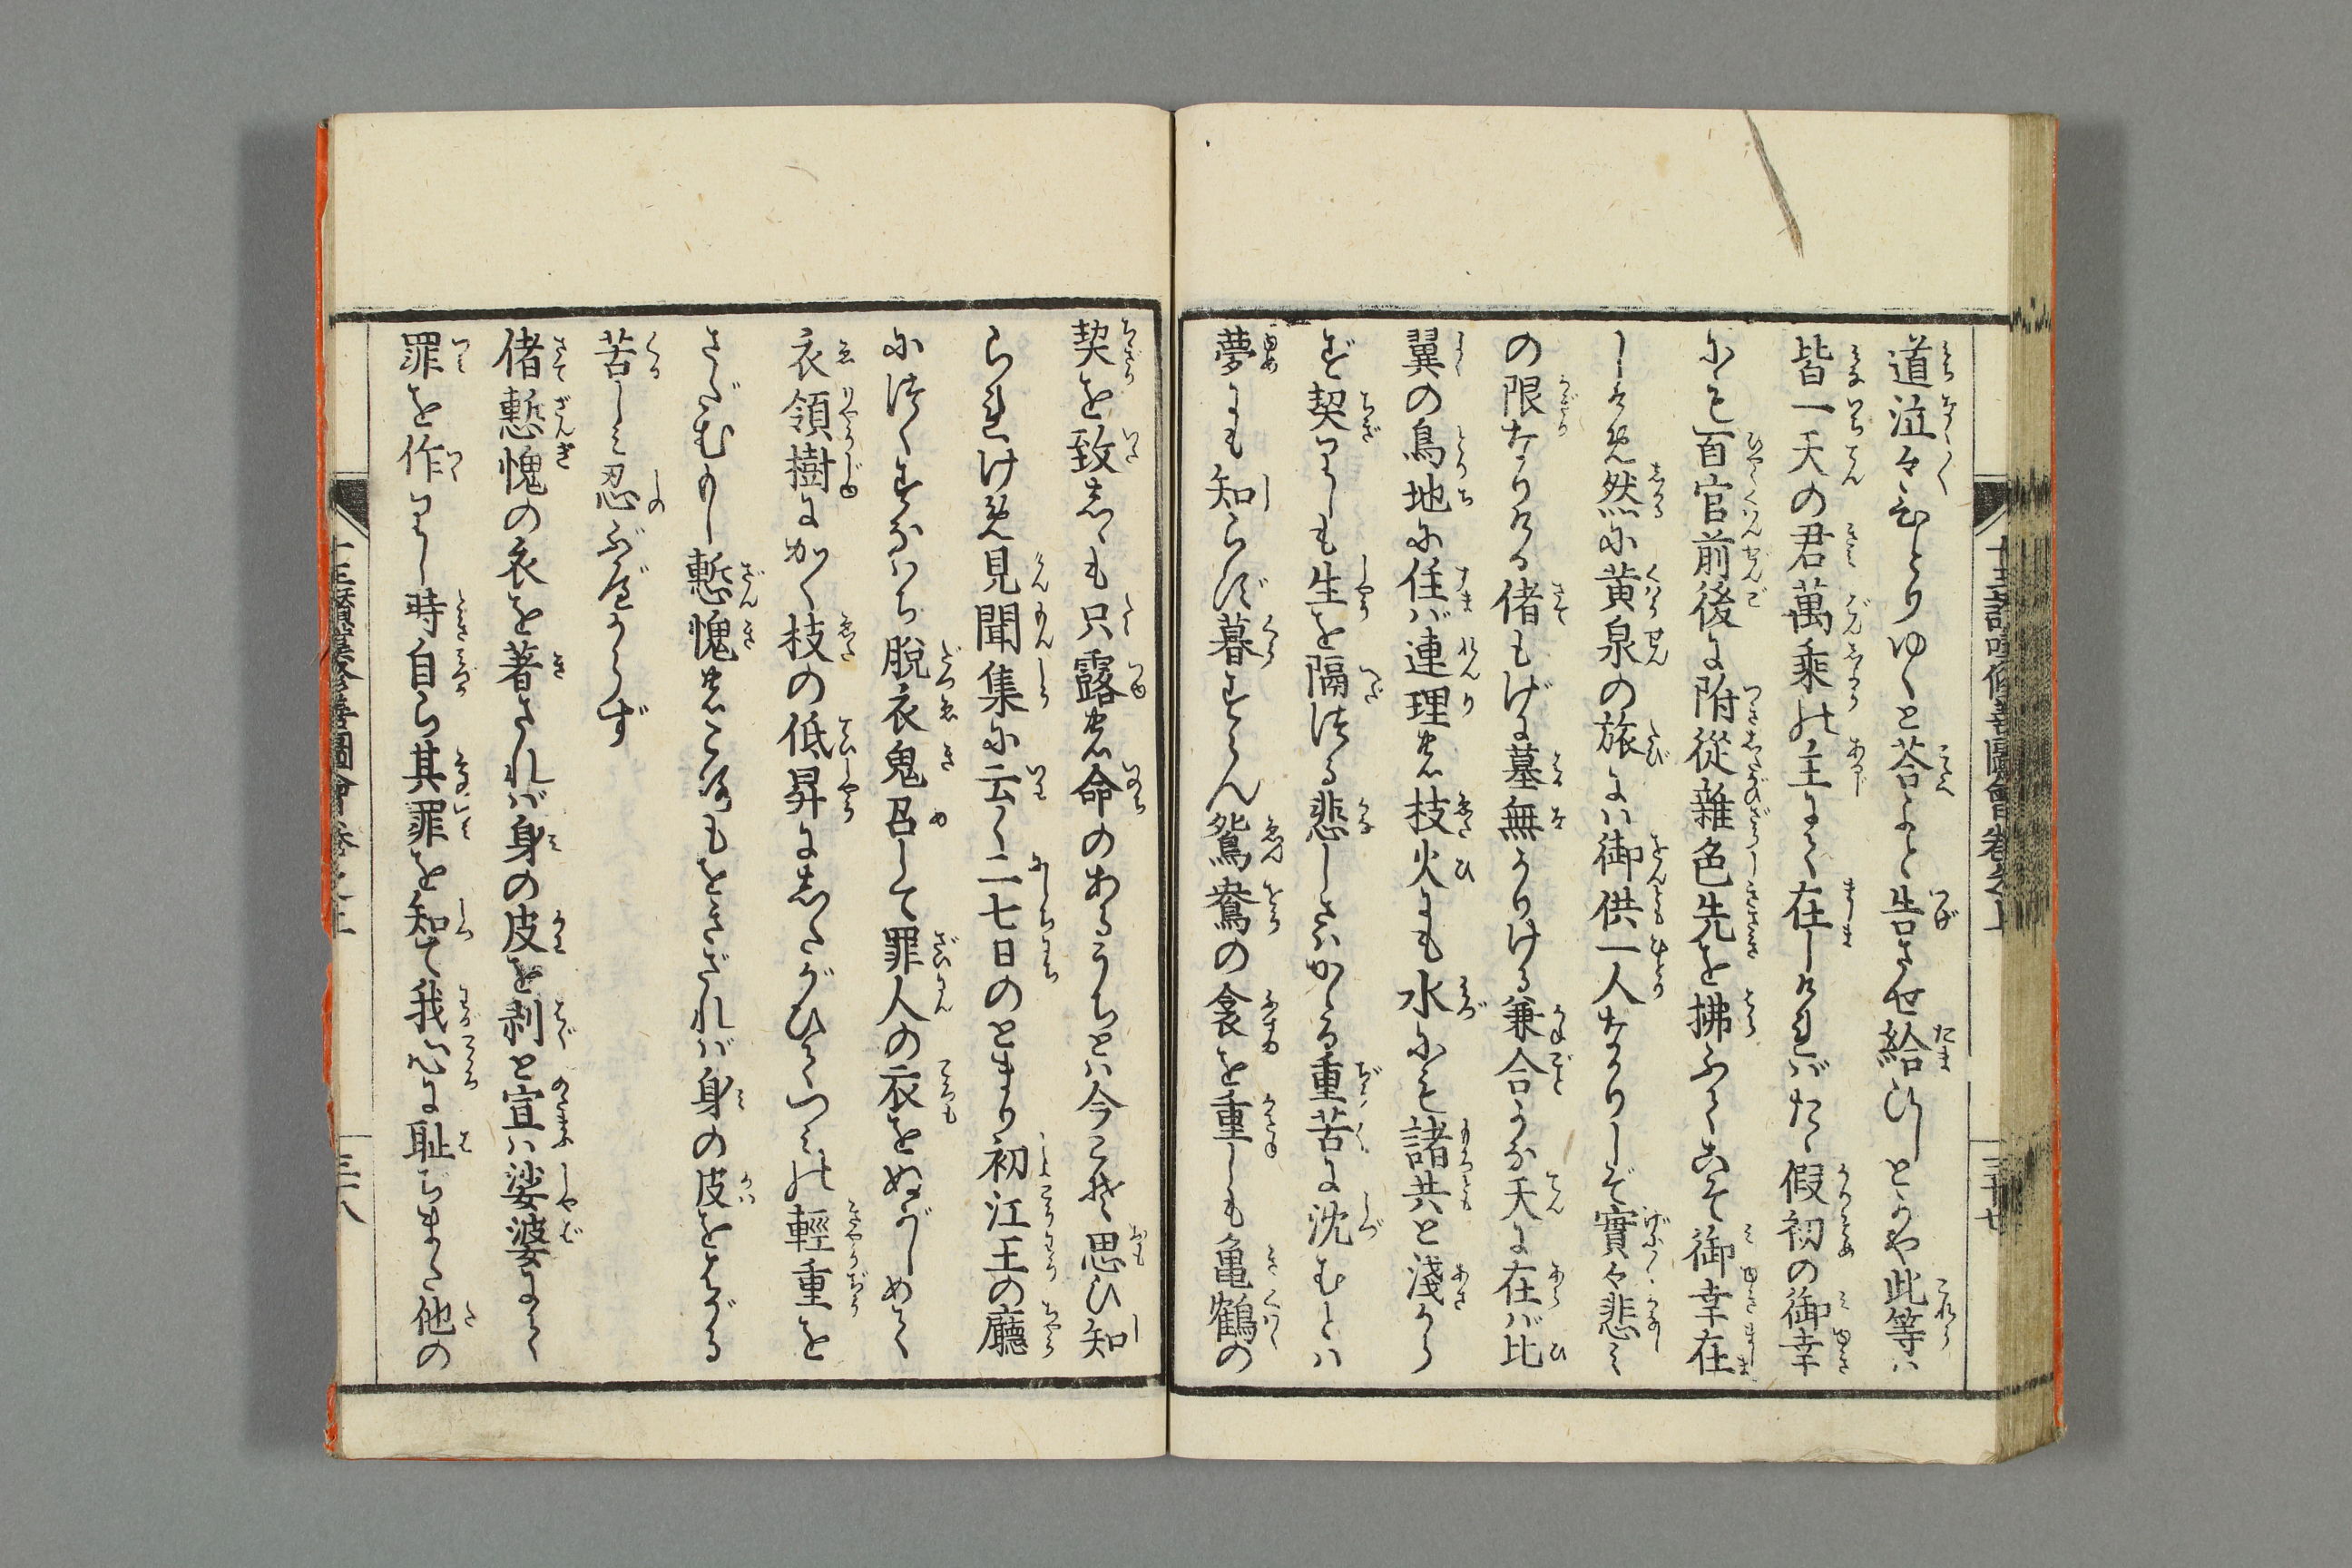 道泣々もひとりゆくと荅よと告させ給ひしとかや此等ハ
皆一天の君萬乗の主にて在しけれバたゞ假初の御幸
にも百官前後に附從雜色先を拂ふてこそ御幸在
しけめ然に黄泉の旅にハ御供一人なかりしぞ實々悲み
の限なりける偖もげに墓無かりける兼合かな天に在バ比
翼の鳥地に住バ連理の枝火にも水にも諸共と淺から
ぞ契りしも生を隔つる悲しさハかゝる重苦に沈むとハ
夢にも知らで暮すらん鴛鴦の衾を重しも亀鶴の
契を致しゝも只露の命のあるうちとハ今こそ思ひ知
られけめ見聞集に云く二七日のとまり初江王の廳
につくすなハち脱衣鬼召して罪人の衣をぬがしめて
衣領樹にかく枝の低昇にしたがひてつみの輕重を
さだむもし慙愧のころもをきざれバ身の皮をはがる
苦しみ忍ぶべからず
偖慙愧の衣を著されバ身の皮を剥と宣ハ娑婆にて
罪を作りし時自ら其罪を知て我心に耻ぢまた他の
十王讃嘆修善圖會巻之上
三十七
十王讃嘆修善圖會巻之上
三十八